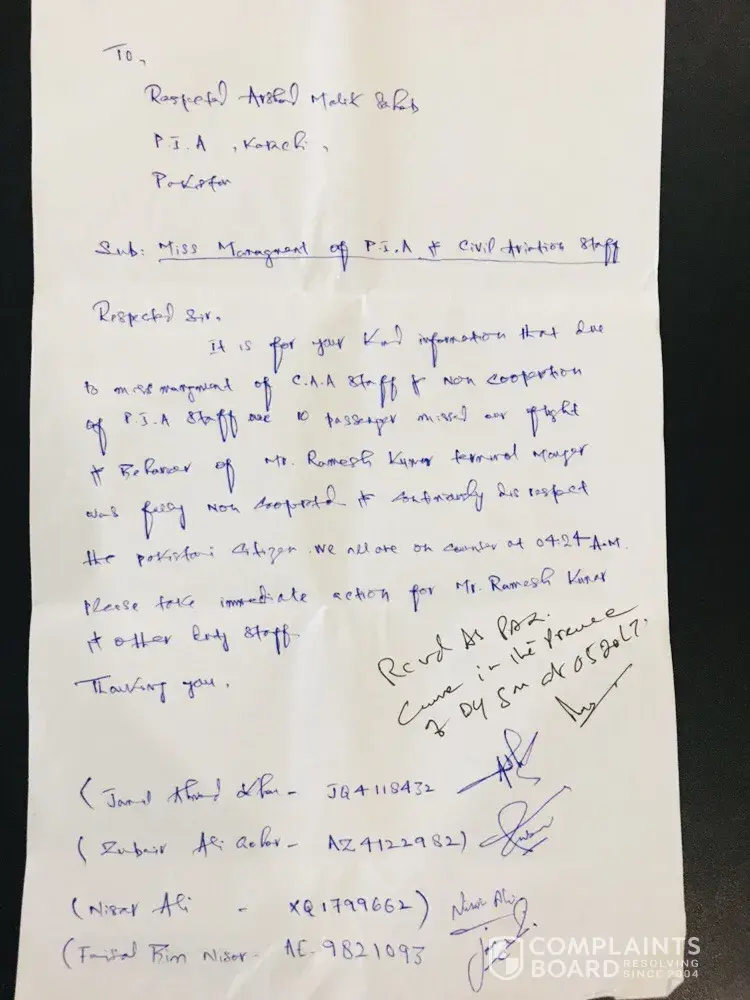 To,
Respected Arshad Malik Sahab
P.I.A , Karachi,
Pakistan
Sub: Miss Managment of P.I.A & Civil Aviation Staff
Respected Sir,
It is for your Kind information that due
to miss managment of C.A.A Staff & Non Coopertion
of P.I.A Staff we 10 passenger missed our flight
& Behavior of Mr. Ramesh Kumar terminal manger
was fully Non Cooperted & Continously dis respect
the pakistani Citizen. We all are on Counter at 04:24 A.M.
Please take immediate action for Mr. Ramesh Kumar
& other duty Staff.
Thanking you.
Recvd As PAX.
Came in the Presence
of DY SM at 0520LT.
(Jamil Ahmad Khan - JQ4118432
(Zubair Ali - AZ4122982)
(Nisar Ali - XQ1799662)
Nisar Ali
(Faisal Bin Nisar - AE-9821093
COMPLAINTS
BOARD RESOLVING
SINCE 2004